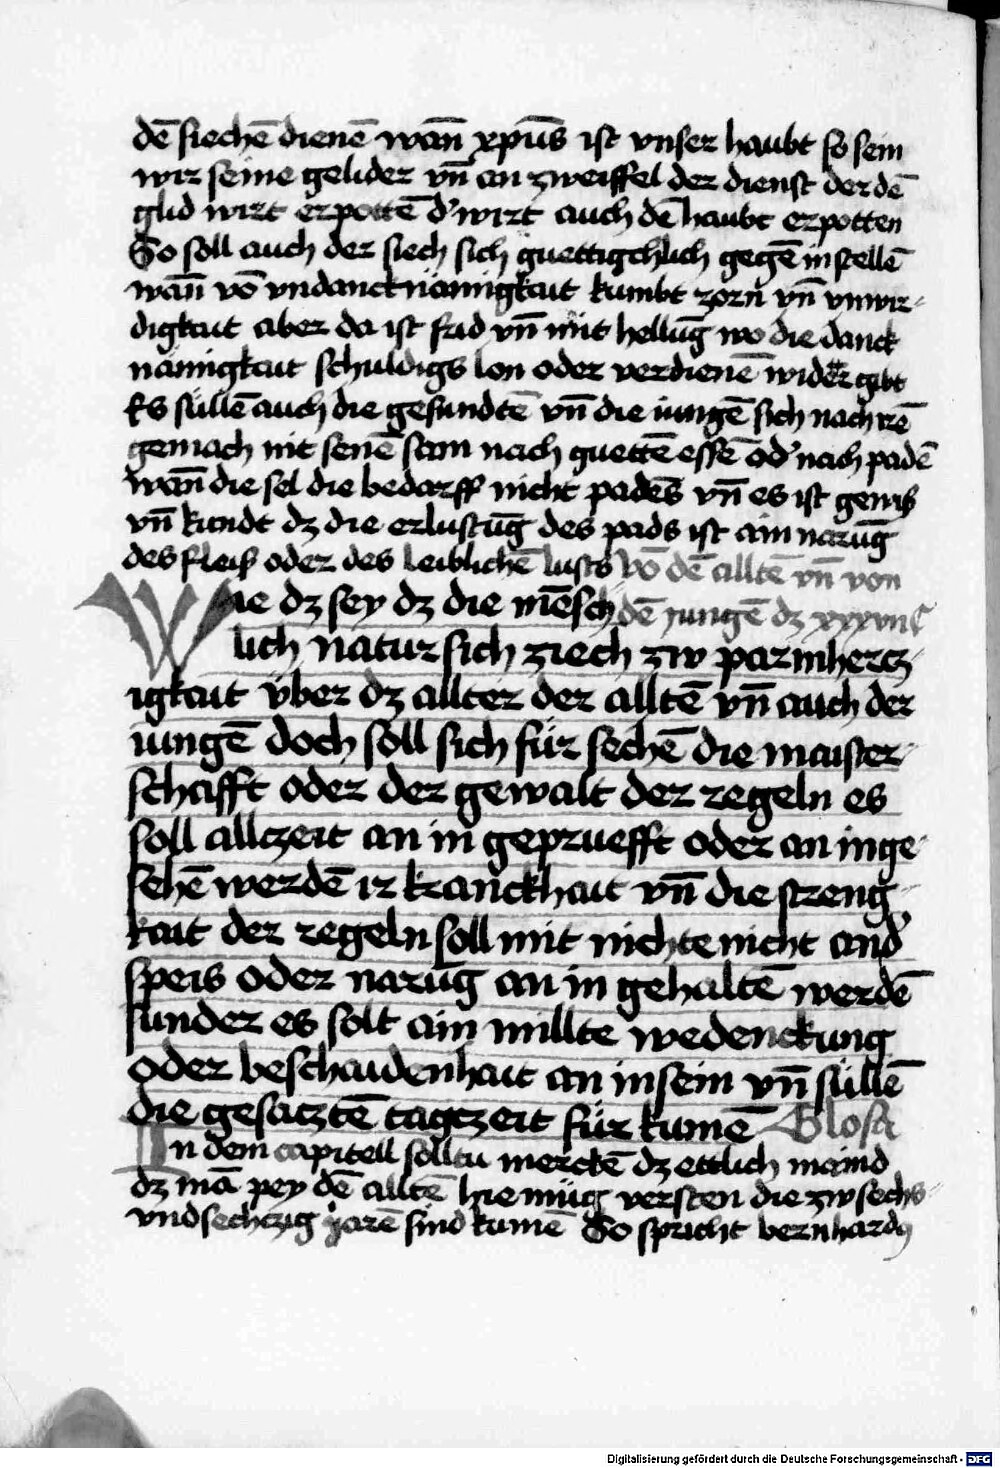 dē siechē dienē wan̄ xpūs ist vnser haubt so sein
wir seine gelider vn̄ an zweiffel der dienst der dē
glid wirt erpottē d' wirt auch dē haubt erpotten
So soll auch der siech sich guettigchlich gegē in stellē
wan̄ vō vndancknämigkait kumbt zorn vn̄ vnwir-
digkait aber da ist frid vn̄ mit hellūg wo die danck
nämigkait schuldigs lon oder verdienē wider gibt
Es süllē auch die gesundtē vn̄ die iungē sich nach irē
gemach nit senē nach guettē essē od' nach padē
wan̄ die sel die bedarff nicht padēs vn̄ es ist gewiß
vn̄ kundt dz die erlustūg des pads ist ain narūg
des fleiß oder des leiblichē lusts Vō dē alltē vn̄ von
Wie dz sey dz die mēsch dē jungē dz xxxvii C
lich natur sich ziech zw parmhercz-
igkait vber dz allter der alltē vn̄ auch der
iungē doch soll sich für sechē die maister-
schafft oder der gewalt der regeln es
soll allczeit an in gepruefft oder an inge-
sehē werdē ir kranckhait vn̄ die streng-
kait der regeln soll mit nichte nicht and'
speis oder narūg an in gehaltē werdē
sunder es solt ain millte wedenckung
oder beschaidenhait an in sein vn̄ süllē
die gesacztē tagczeit für kumē Glosa
In dem capitell solltu merckē dz ettlich maind
dz mā pey dē alltē hie müg versten die zw sechs-
vnd sechczig jarē sind kumē So spricht bernhard9
Digitalisierung gefördert durch die Deutsche Forschungsgemeinschaft - DFG